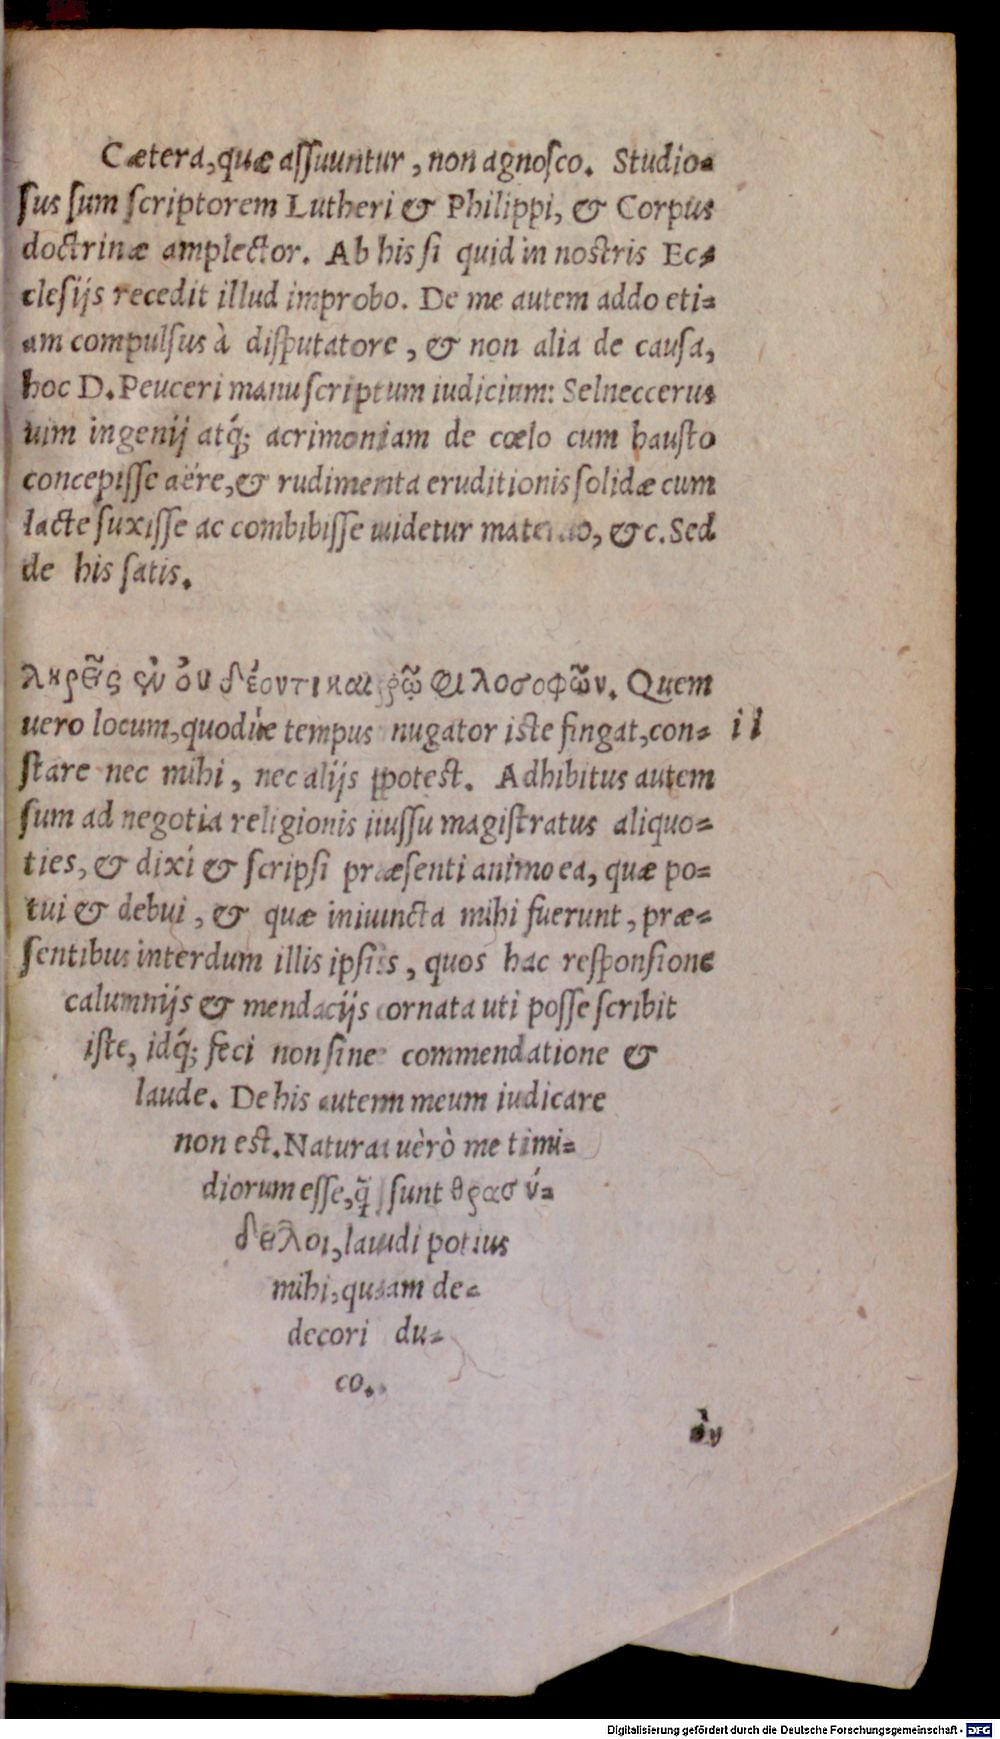 Cætera, quæ assuuntur, non agnosco. Studio=
sus sum scriptorem Lutheri & Philippi, & Corpus
doctrinæ amplector. Ab his si quid in nostris Ec=
clesijs recedit illud improbo. De me autem addo eti=
am compulsus à disputatore, & non alia de causa,
hoc D. Peuceri manuscriptum iudicium: Selneccerus
uim ingenij atq́; acrimoniam de cœlo cum hausto
concepisse aëre, & rudimenta eruditionis solidæ cum
lacte suxisse ac combibisse uidetur materno, &c. Sed
de his satis.
φιλοσοφῶν. Quem
uero locum, quodue tempus nugator iste fingat, con=
il
stare nec mihi, nec alijs potest. Adhibitus autem
sum ad negotia religionis iussu magistratus aliquo=
ties, & dixi & scripsi præsenti animo ea, quæ po=
tui & debui, & quæ iniuncta mihi fuerunt, præ=
sentibus interdum illis ipsis, quos hac responsione
calumnijs & mendacijs ornata uti posse scribit
iste, idq́; feci non sine commendatione &
laude. De his autem meum iudicare
non est. Natura uèrò me timi=
diorum esse, q̃ sunt θρασύ=
δειλοι, laudi potius
mihi, quàm de=
decori du=
co.
ὸυ
Digitalisierung gefördert durch die Deutsche Forschungsgemeinschaft - DFG